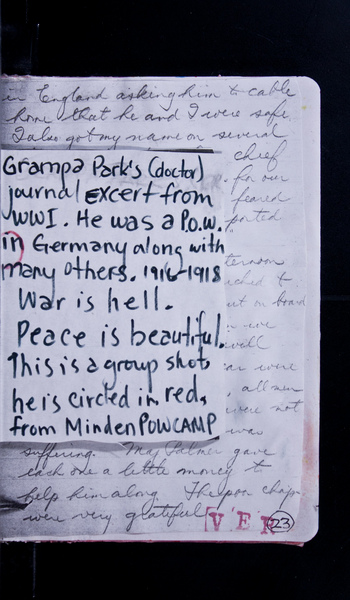 in England asking him to cable
home that he and I were safe.
I also got my name on several
chief
for our
feared
ported
Grampa Park's (doctor)
journal excert from
WWI. He was a P.O.W.
in Germany along with
many others. 1916-1918
War is hell.
Peace is beautiful.
This is a group shot,
he is circled in red,
from Minden POW CAMP
ternoon
ched to
ut on board
we
well
were
all men
were not
was
suffering. Maj Palmer gave
each one a little money to
help him along. The poor chaps
were very grateful
VER
23